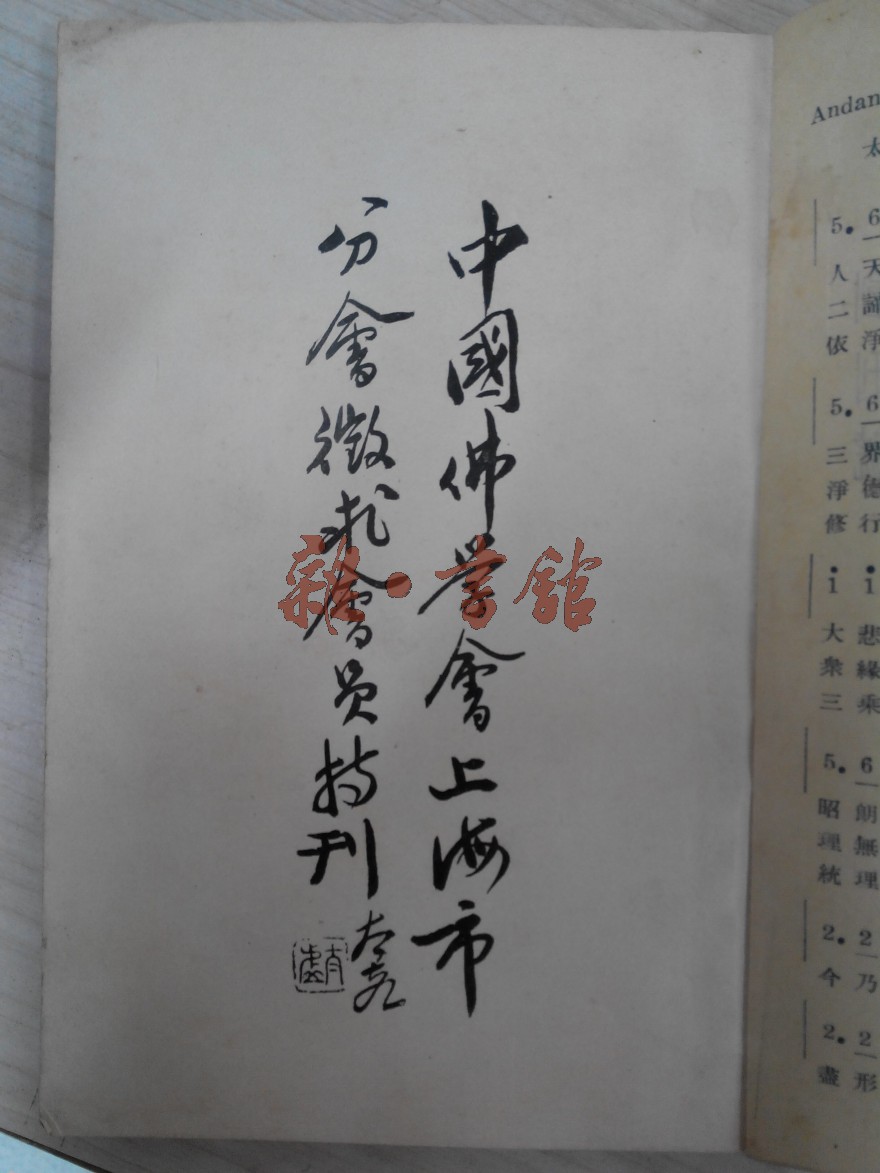 中國佛学會上海市
分會徵求會员特刊
太虛
雜·書館
Andan
太
6 5.
天 人
諦 二
淨 依
6 5.
界 三
德 淨
行 修
i i
悲 大
緣 衆
乘 三
6 5.
朗 昭
無 理
理 統
2 2.
乃 今
2 2.
形 盡